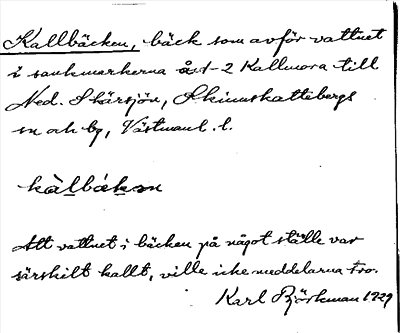 Kallbäcken, bäck som avför vattnet
i sankmarkerna å 1-2 Kallmora till
Ned. Skärsjön, Skinnskattebergs
sn och bg, Västmanl. l.
kàlbákan
Att vattnet i bäcken på något ställe var
särskilt kallt, ville icke meddelarna tro.
Karl Björkman 1929